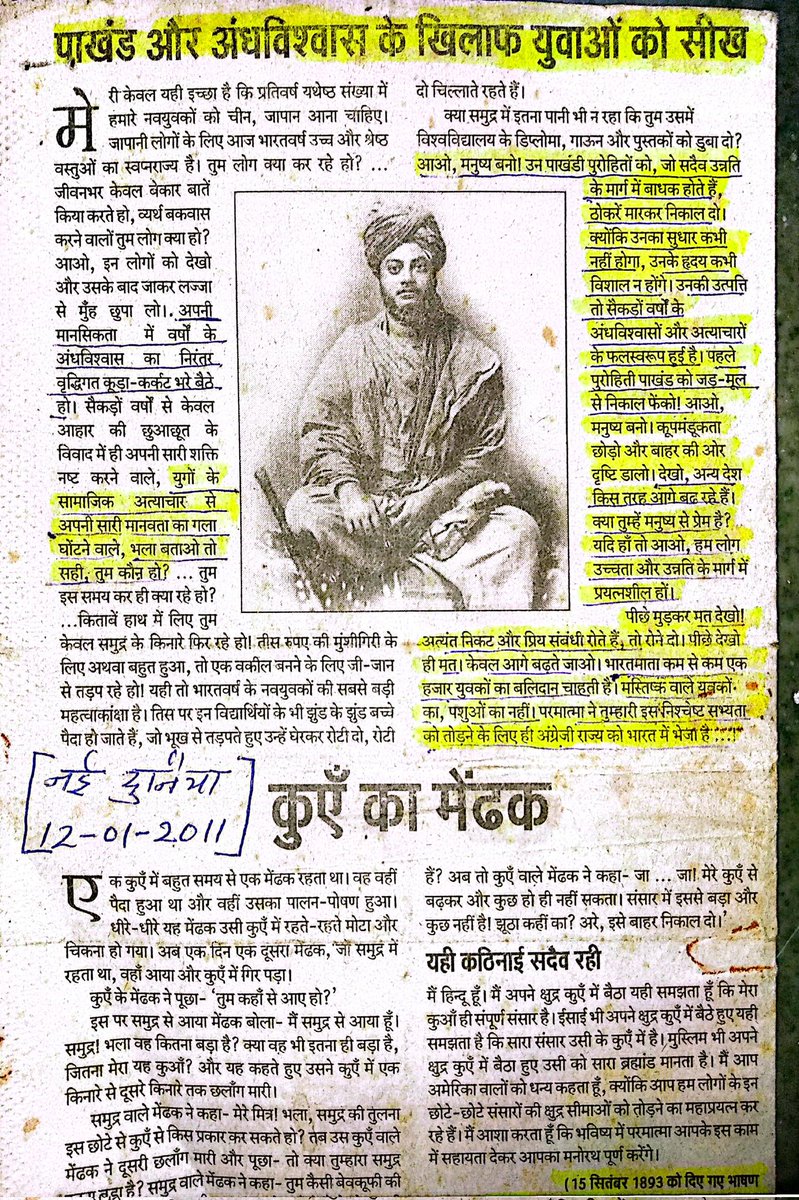 पाखंड और अंधविश्वास के खिलाफ युवाओं को सीख
मेरी केवल यही इच्छा है कि प्रतिवर्ष यथेष्ठ संख्या में
हमारे नवयुवकों को चीन, जापान आना चाहिए।
जापानी लोगों के लिए आज भारतवर्ष उच्च और श्रेष्ठ
वस्तुओं का स्वप्नराज्य है। तुम लोग क्या कर रहे हो? ...
जीवनभर केवल बेकार बातें
किया करते हो, व्यर्थ बकवास
करने वालों तुम लोग क्या हो?
आओ, इन लोगों को देखो
और उसके बाद जाकर लज्जा
से मुँह छुपा लो।. अपनी
मानसिकता में वर्षों के
अंधविश्वास का निरंतर
वृद्धिगत कूड़ा-कर्कट भरे बैठे
हो। सैकड़ों वर्षों से केवल
आहार की छुआछूत के
विवाद में ही अपनी सारी शक्ति
नष्ट करने वाले, युगों के
सामाजिक अत्याचार से
अपनी सारी मानवता का गला
घोंटने वाले, भला बताओ तो
सही, तुम कौन हो? ... तुम
इस समय कर ही क्या रहे हो?
...किताबें हाथ में लिए तुम
केवल समुद्र के किनारे फिर रहे हो! तीस रुपए की मुंशीगिरी के
लिए अथवा बहुत हुआ, तो एक वकील बनने के लिए जी-जान
से तड़प रहे हो! यही तो भारतवर्ष के नवयुवकों की सबसे बड़ी
महत्वाकांक्षा है। तिस पर इन विद्यार्थियों के भी झुंड के झुंड बच्चे
पैदा हो जाते हैं, जो भूख से तड़पते हुए उन्हें घेरकर रोटी दो, रोटी
दो चिल्लाते रहते हैं।
क्या समुद्र में इतना पानी भी न रहा कि तुम उसमें
विश्वविद्यालय के डिप्लोमा, गाऊन और पुस्तकों को डुबा दो?
आओ, मनुष्य बनो! उन पाखंडी पुरोहितों को, जो सदैव उन्नति
के मार्ग में बाधक होते हैं,
ठोकरें मारकर निकाल दो।
क्योंकि उनका सुधार कभी
नहीं होगा, उनके हृदय कभी
विशाल न होंगे। उनकी उत्पत्ति
तो सैकड़ों वर्षों के
अंधविश्वासों और अत्याचारों
के फलस्वरूप हुई है। पहले
पुरोहिती पाखंड को जड़-मूल
से निकाल फेंको! आओ,
मनुष्य बनो। कूपमंडूकता
छोड़ो और बाहर की ओर
दृष्टि डालो। देखो, अन्य देश
किस तरह आगे बढ़ रहे हैं।
क्या तुम्हें मनुष्य से प्रेम है?
यदि हाँ तो आओ, हम लोग
उच्चता और उन्नति के मार्ग में
प्रयत्नशील हों।
पीछे मुड़कर मत देखो!
अत्यंत निकट और प्रिय संबंधी रोते हैं, तो रोने दो। पीछे देखो
ही मत। केवल आगे बढ़ते जाओ। भारतमाता कम से कम एक
हजार युवकों का बलिदान चाहती है। मस्तिष्क वाले युवकों
का, पशुओं का नहीं। परमात्मा ने तुम्हारी इस निश्चेष्ट सभ्यता
को तोड़ने के लिए ही अंग्रेजी राज्य को भारत में भेजा है ...!
[नई दुनिया
12-01-2011]
कुएँ का मेंढक
एक कुएँ में बहुत समय से एक मेंढक रहता था। वह वहीं
पैदा हुआ था और वहीं उसका पालन-पोषण हुआ।
धीरे-धीरे यह मेंढक उसी कुएँ में रहते-रहते मोटा और
चिकना हो गया। अब एक दिन एक दूसरा मेंढक, जो समुद्र में
रहता था, वहाँ आया और कुएँ में गिर पड़ा।
कुएँ के मेंढक ने पूछा- 'तुम कहाँ से आए हो?'
इस पर समुद्र से आया मेंढक बोला- मैं समुद्र से आया हूँ।
समुद्र! भला वह कितना बड़ा है? क्या वह भी इतना ही बड़ा है,
जितना मेरा यह कुआँ? और यह कहते हुए उसने कुएँ में एक
किनारे से दूसरे किनारे तक छलाँग मारी।
समुद्र वाले मेंढक ने कहा- मेरे मित्र! भला, समुद्र की तुलना
इस छोटे से कुएँ से किस प्रकार कर सकते हो? तब उस कुएँ वाले
मेंढक ने दूसरी छलाँग मारी और पूछा- तो क्या तुम्हारा समुद्र
इतना बड़ा है? समुद्र वाले मेंढक ने कहा- तुम कैसी बेवकूफी की
हैं? अब तो कुएँ वाले मेंढक ने कहा- जा ... जा! मेरे कुएँ से
बढ़कर और कुछ हो ही नहीं सकता। संसार में इससे बड़ा और
कुछ नहीं है! झूठा कहीं का? अरे, इसे बाहर निकाल दो।'
यही कठिनाई सदैव रही
मैं हिन्दू हूँ। मैं अपने क्षुद्र कुएँ में बैठा यही समझता हूँ कि मेरा
कुआँ ही संपूर्ण संसार है। ईसाई भी अपने क्षुद्र कुएँ में बैठे हुए यही
समझता है कि सारा संसार उसी के कुएँ में है। मुस्लिम भी अपने
क्षुद्र कुएँ में बैठा हुए उसी को सारा ब्रह्मांड मानता है। मैं आप
अमेरिका वालों को धन्य कहता हूँ, क्योंकि आप हम लोगों के इन
छोटे-छोटे संसारों की क्षुद्र सीमाओं को तोड़ने का महाप्रयत्न कर
रहे हैं। मैं आशा करता हूँ कि भविष्य में परमात्मा आपके इस काम
में सहायता देकर आपका मनोरथ पूर्ण करेंगे।
(15 सितंबर 1893 को दिए गए भाषण